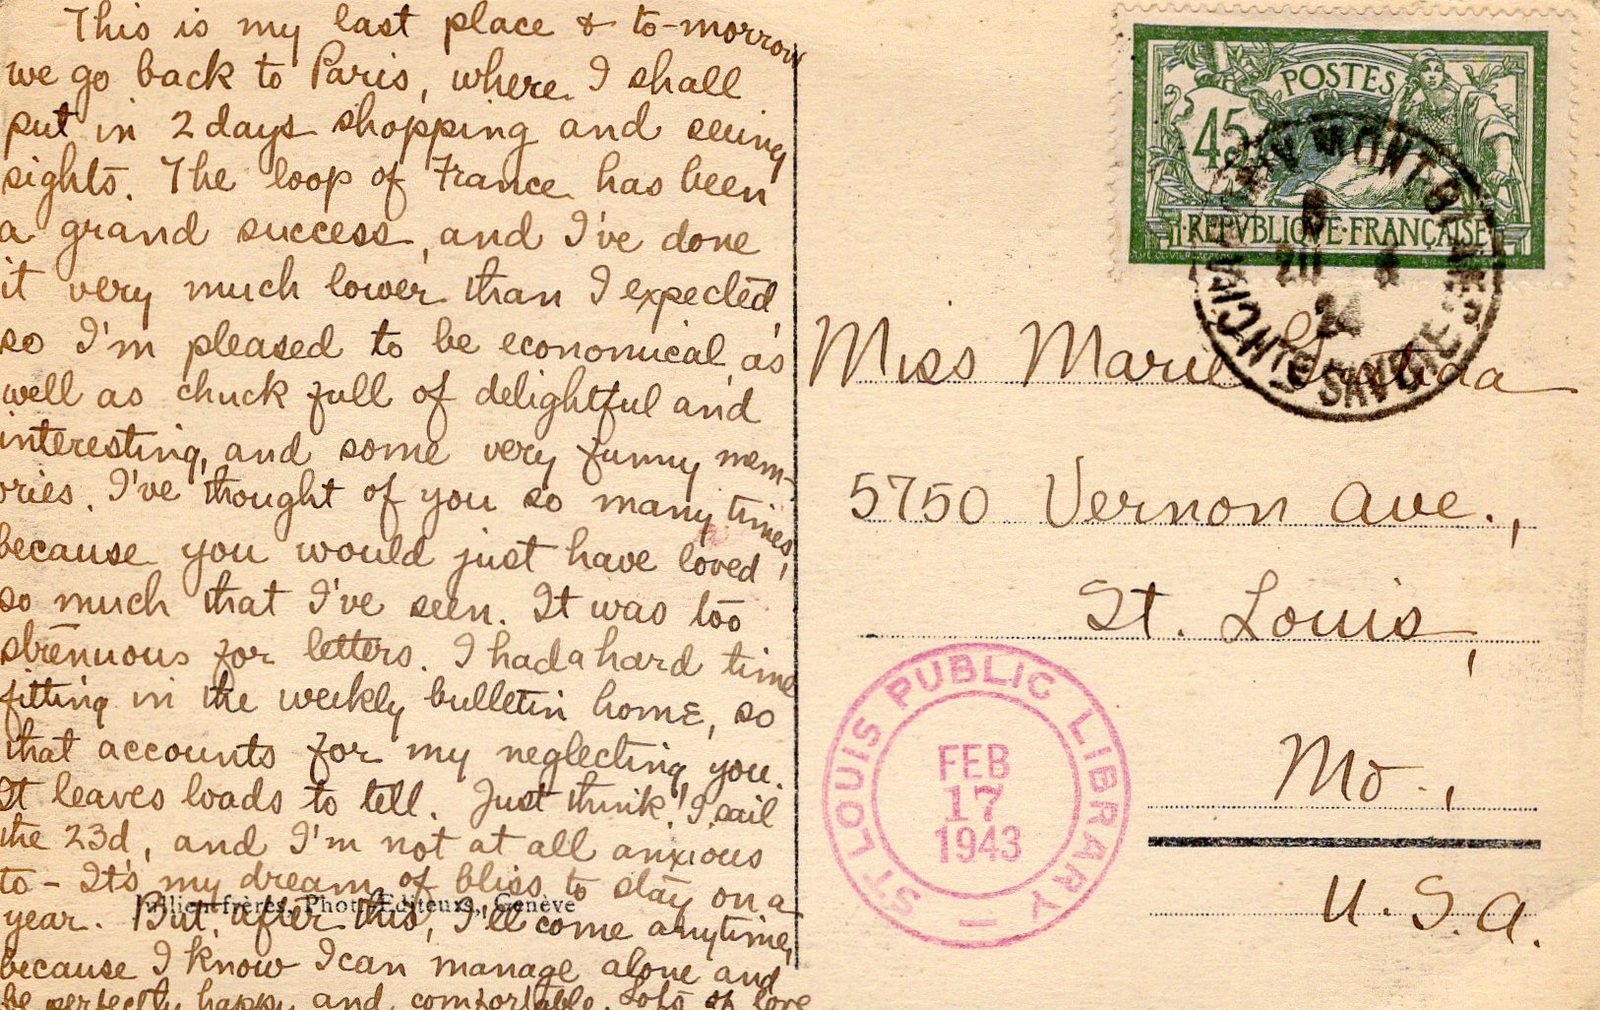 This is my last place & to-morrow
we go back to Paris, where I shall
put in 2 days shopping and seeing
sights. The loop of France has been
a grand success, and I've done
it very much lower than I expected,
so I'm pleased to be economical, as
well as chuck full of delightful and
interesting, and some very funny mem-
ories. I've thought of you so many times,
because you would just have loved
so much that I've seen. It was too
strenuous for letters. I had a hard time
fitting in the weekly bulletin home, so
that accounts for my neglecting you.
It leaves loads to tell. Just think! I sail
the 23d, and I'm not at all anxious
to - It's my dream of bliss to stay on a
year. But, after this, I'll come anytime,
because I know I can manage alone and
be perfectly happy and comfortable. Lots of love
Jullien frères, Phot. Editeurs, Genève
POSTES
45
REPVBLIQVE·FRANÇAISE
CHAMONIX MONT-BLANC
Hte SAVOIE
20
24
Miss Marie
5750 Vernon Ave.,
St. Louis,
Mo.,
U.S.A.
ST. LOUIS PUBLIC LIBRARY
FEB
17
1943